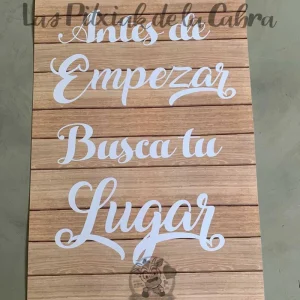 Las Pitxiak de la Cabra
Antes de
Empezar
Busca tu
Lugar